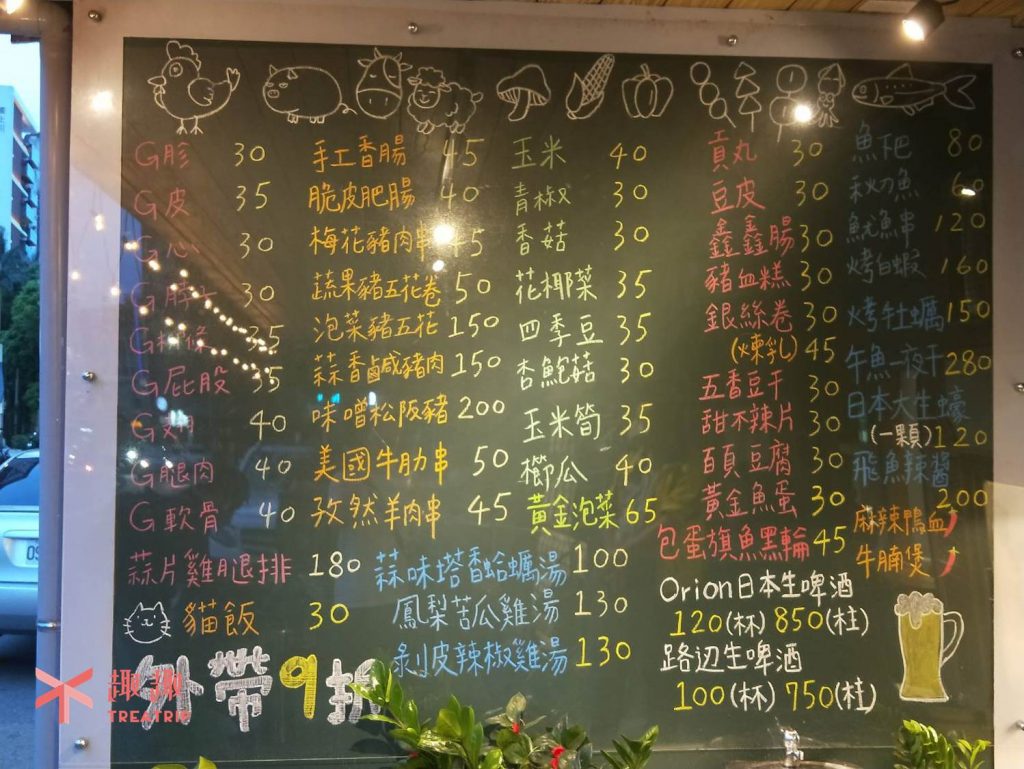 G胗 30
G皮 35
G心 30
G脖子 30
G 35
G屁股 35
G 40
G腿肉 40
G軟骨 40
蒜片雞腿排 180
貓飯 30
外帶9折
手工香腸 45
脆皮肥腸 40
梅花豬肉串 45
蔬果豬五花卷 50
泡菜豬五花 150
蒜香鹹豬肉 150
味噌松阪豬 200
美國牛肋串 50
孜然羊肉串 45
蒜味塔香蛤蠣湯 100
鳳梨苦瓜雞湯 130
剝皮辣椒雞湯 130
玉米 40
青椒 30
香菇 30
花椰菜 35
四季豆 35
杏鮑菇 30
玉米筍 35
櫛瓜 40
黃金泡菜 65
貢丸 30
豆皮 30
鑫鑫腸 30
豬血糕 30
銀絲卷 30
(煉乳) 45
五香豆干 30
甜不辣片 30
百頁豆腐 30
黃金魚蛋 30
包蛋旗魚黑輪 45
Orion日本生啤酒
120(杯) 850(柱)
路辺生啤酒
100(杯) 750(柱)
魚粑 80
秋刀魚 60
魷魚串 120
烤白蝦 160
烤牡蠣 150
午魚一夜干 280
日本大生蠔
(一顆) 120
飛魚辣醬
200
麻辣鴨血
牛腩煲
趣趣
TREATRIP